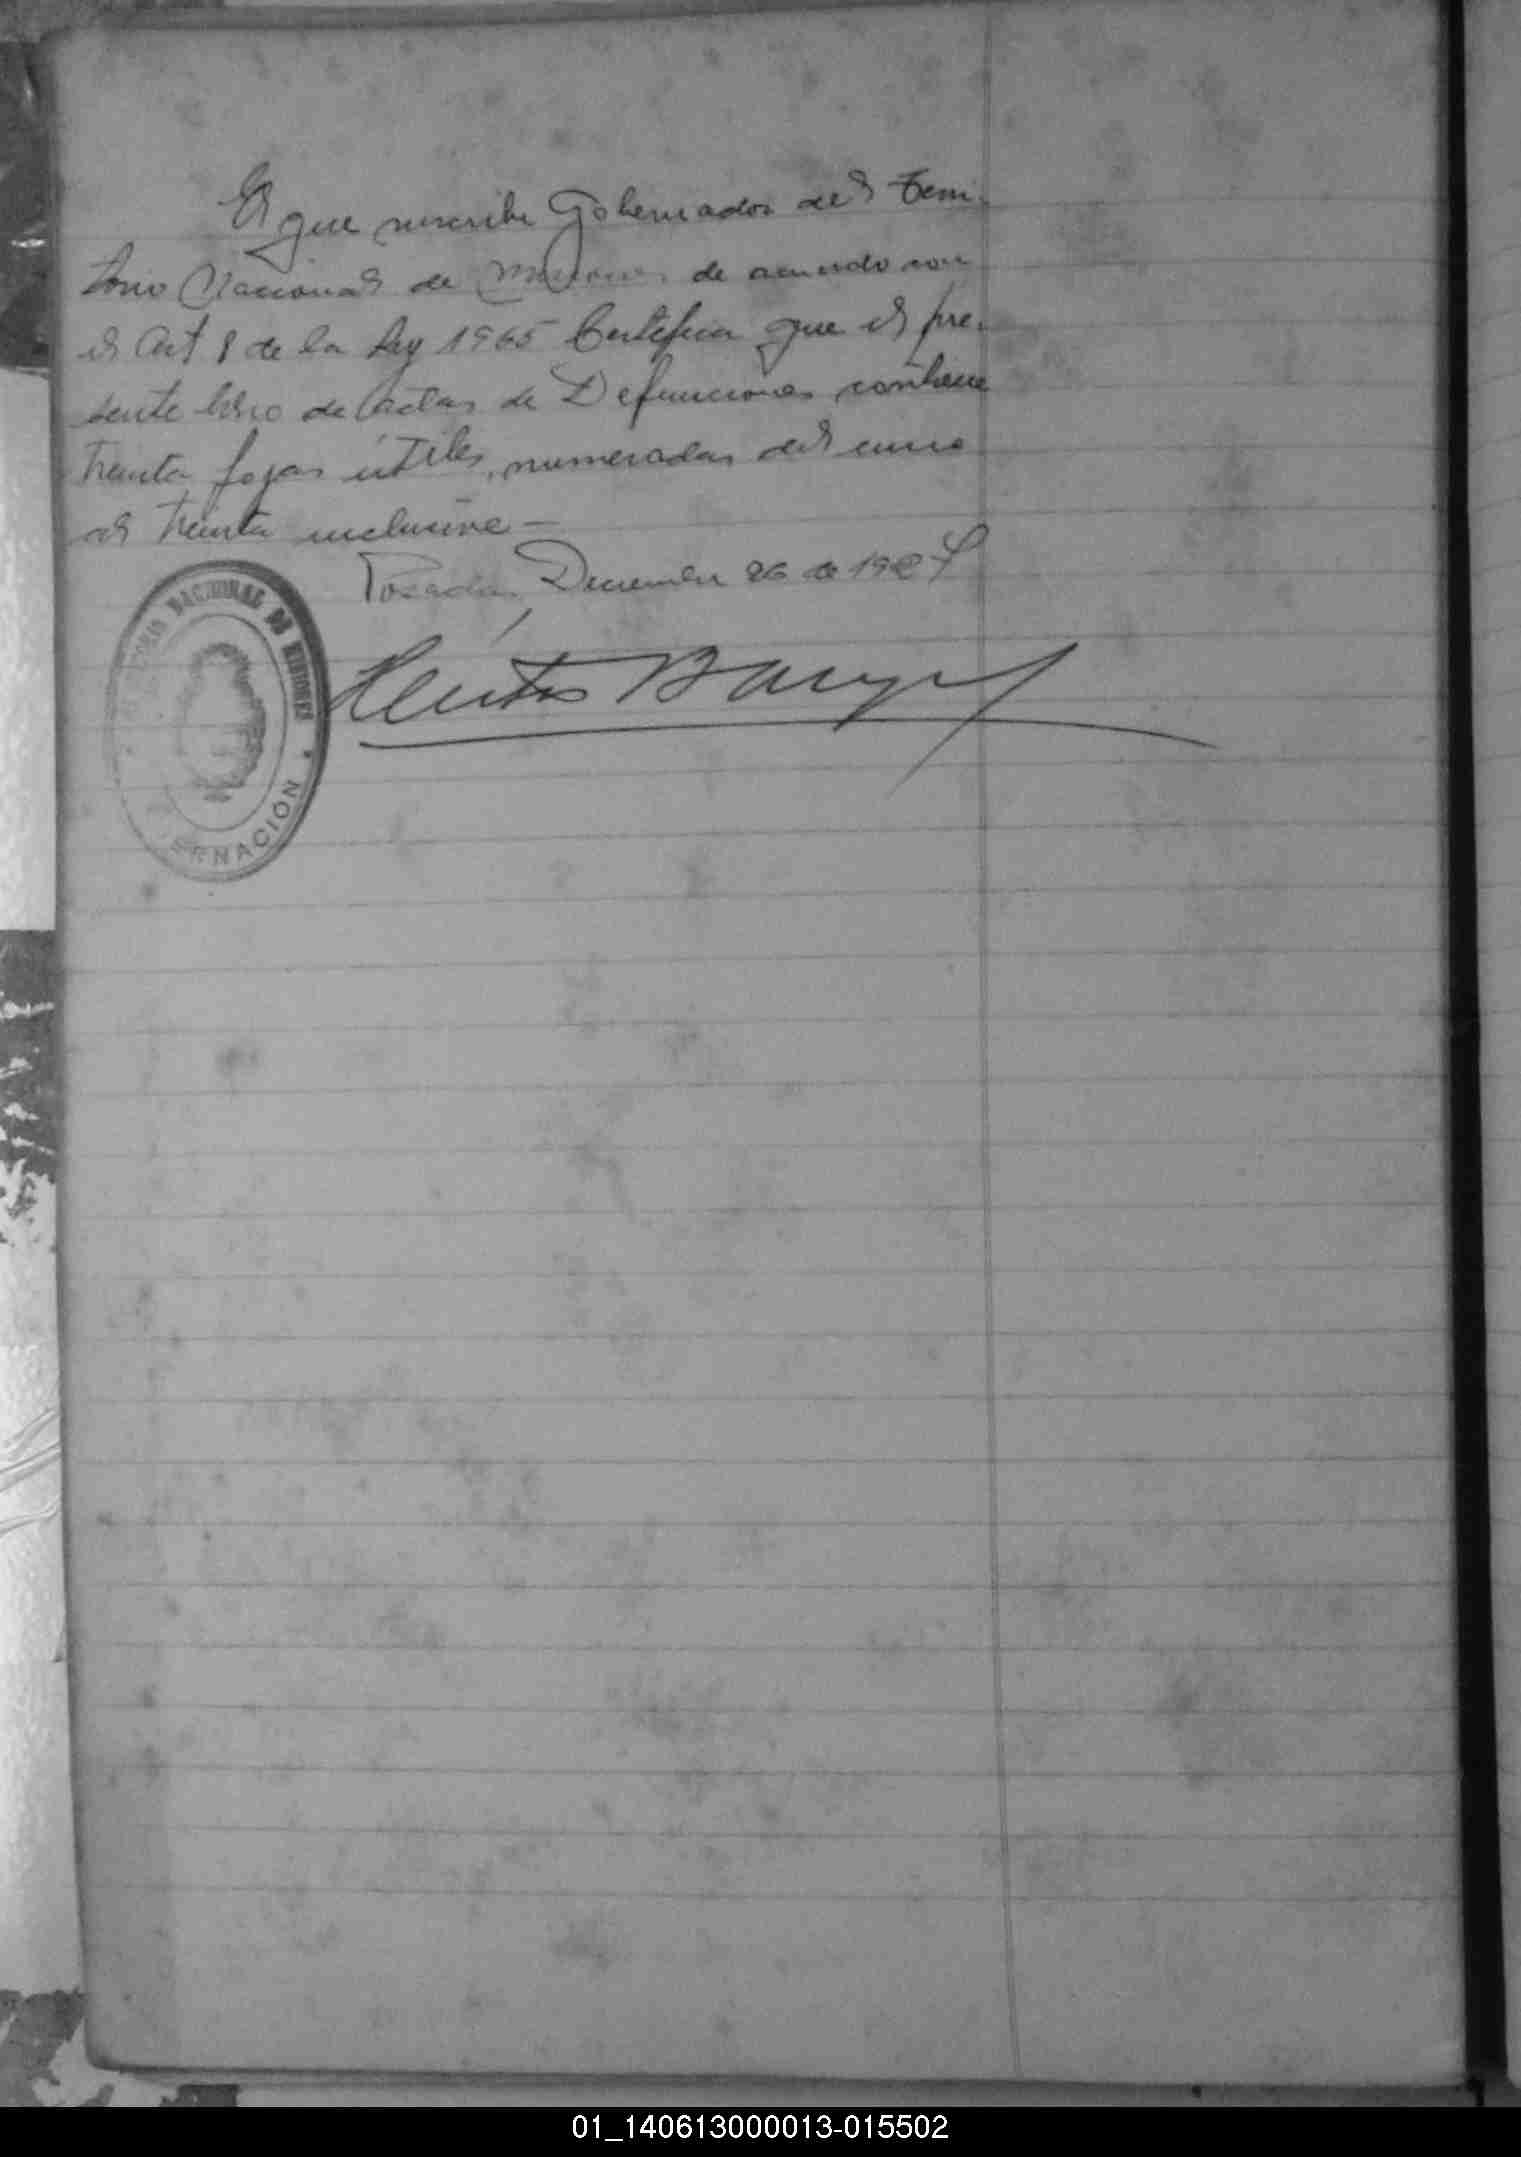 El que suscribe Gobernador del Terri-
torio Nacional de Misiones de acuerdo con
el Art 8 de la Ley 1965 Certifica que el pre-
sente libro de actas de Defunciones contiene
treinta fojas útiles, numeradas del uno
al treinta inclusive—
Posadas, Diciembre 26 de 192
NACIONAL DE MISIONES
ERNACIÓN
01_140613000013-015502